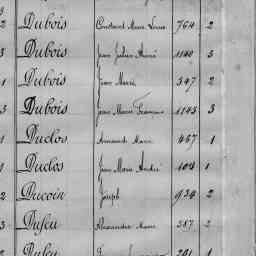 2 Dubois Constant Marie Louis 764 2
3 Dubois Jean Julien Aimé 1140 3
1 Dubois Jean Marie 347 2
3 Dubois Jean Marie François 1143 3
1 Duclos Armand Marie 467 1
1 Duclos Jean Marie André 104 1
2 Ducoin Joseph 934 2
3 Dufeu Alexandre Marie 387 2
2 Dufeu 291 1